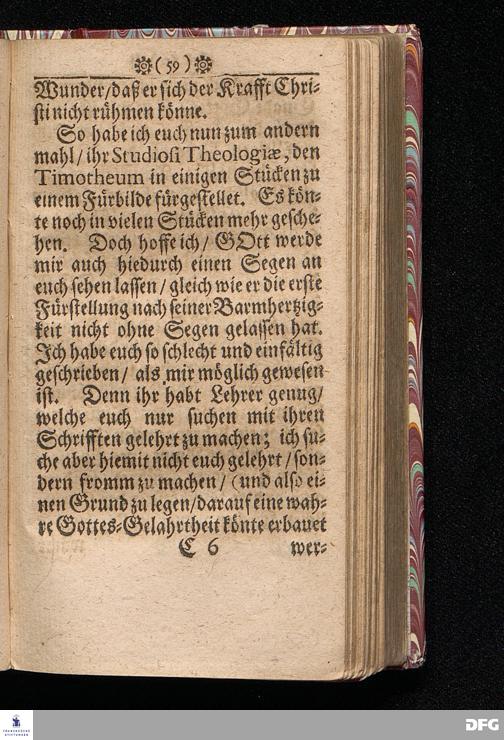 ( 59 )
Wunder/daß er sich der Krafft Chri-
sti nicht rühmen könne.
So habe ich euch nun zum andern
mahl/ ihr Studiosi Theologiæ, den
Timotheum in einigen Stücken zu
einem Fürbilde fürgestellet. Es kön-
te noch in vielen Stücken mehr gesche-
hen. Doch hoffe ich/ GOtt werde
mir auch hiedurch einen Segen an
euch sehen lassen/ gleich wie er die erste
Fürstellung nach seiner Barmhertzig-
keit nicht ohne Segen gelassen hat.
Ich habe euch so schlecht und einfältig
geschrieben/ als mir möglich gewesen
ist. Denn ihr habt Lehrer genug/
welche euch nur suchen mit ihren
Schrifften gelehrt zu machen; ich su-
che aber hiemit nicht euch gelehrt/ son-
dern fromm zu machen/ (und also ei-
nen Grund zu legen/darauf eine wah-
re Gottes-Gelahrtheit könte erbauet
C 6 wer-
FRANCKESCHE
STIFTUNGEN
DFG